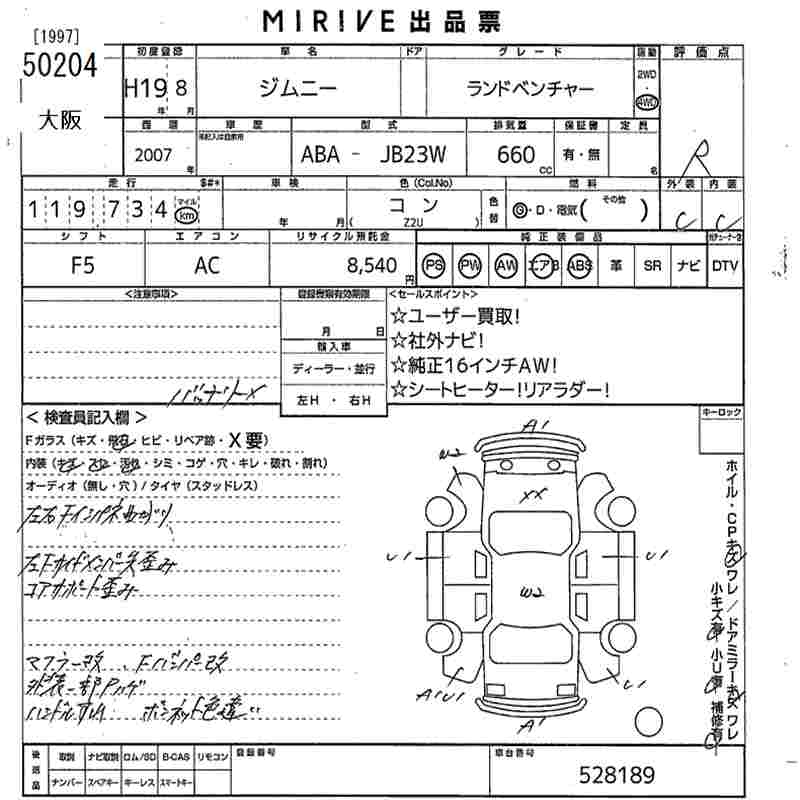 MIRIVE 出品票
[1997]
50204
大阪
初度登録 車名 ドア グレード 駆動 評価点
H19 8 年 月 ジムニー ランドベンチャー 2WD・4WD
西暦 車歴 型式 排気量 保証書 定員 R
2007 年 ABA - JB23W 660 CC 有・無 名
走行 $#* 車検 色(Col.No) 燃料 外装 内装
119,734 マイル km 年 月 コン ( Z2U ) 色替 G・D・電気 ( その他 ) C C
シフト エアコン リサイクル預託金 純正装備品
F5 AC 8,540 円 PS PW AW エアB ABS 革 SR ナビ DTV
<注意事項> 登録機種有効期限 <セールスポイント>
月 日 ☆ユーザー買取!
輸入車 ☆社外ナビ!
ディーラー・並行 ☆純正16インチAW!
左H ・ 右H ☆シートヒーター!リアラダー!
<検査員記入欄> キーロック
Fガラス (キズ・飛石・ヒビ・リペア跡・X要)
内装 (・シミ・コゲ・穴・キレ・破れ・割れ)
オーディオ (無し・穴) / タイヤ (スタッドレス)
左右Fインパネ曲がり
左Fサイドメンバー先歪み
コアサポート歪み
マフラー改、Fバンパー改
外装一部Pハゲ
ハンドルすれ ボンネット色違い
A1
W2
XX
U1 U1
W2
A1U1 U1
A1
ホイル・CPキズ ワレ / ドアミラーキズ ワレ
小キズ有 小U有 補修有
後送品 取説 ナビ取説 ロム/SD B-CAS リモコン 登録番号 車台番号
ナンバー スペアキー キーレス スマートキー 528189